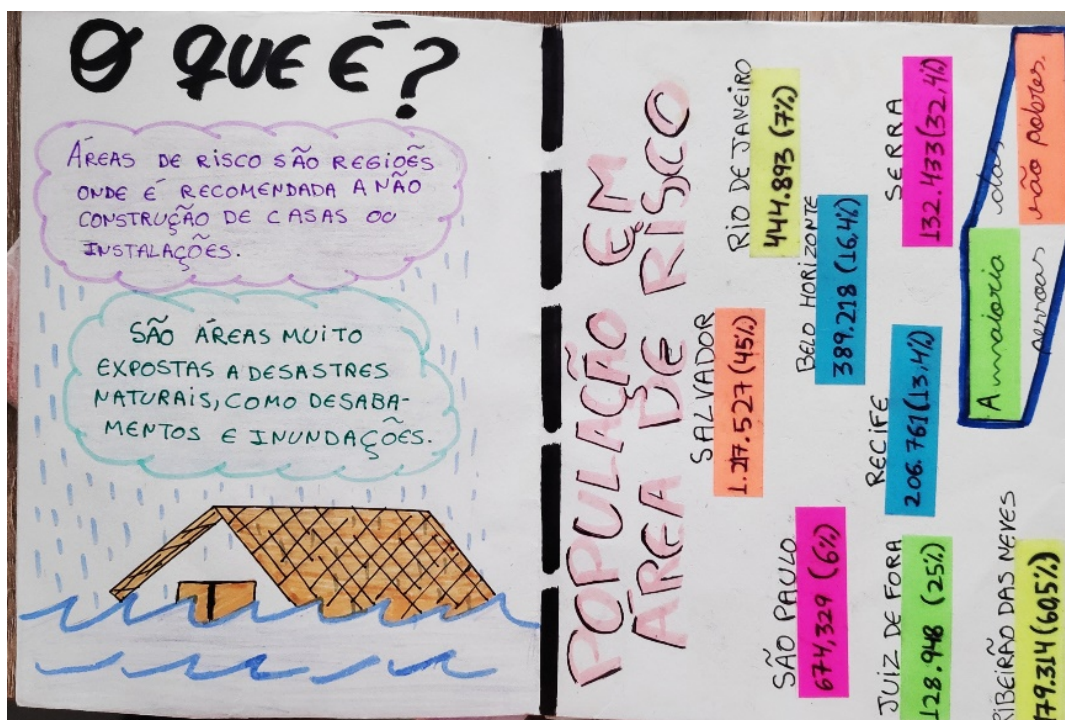 O QUE É?
ÁREAS DE RISCO SÃO REGIOẼS
ONDE É RECOMENDADA A NÃO
CONSTRUÇÃO DE CASAS OU
INSTALAÇÕES.
SÃO ÁREAS MUITO
EXPOSTAS A DESASTRES
NATURAIS, COMO DESABA-
MENTOS E INUNDAÇÕES.
POPULAÇÃO EM
ÁREA DE RISCO
SALVADOR
1.217.527 (45%)
RIO DE JANEIRO
444.893 (7%)
SÃO PAULO
674,329 (6%)
BELO HORIZONTE
389.218 (16,4%)
RECIFE
206.761 (13,4%)
SERRA
132.433 (32,4%)
JUIZ DE FORA
128.948 (25%)
RIBEIRÃO DAS NEVES
179.314 (60,5%)
A maioria das
pessoas são pobres.